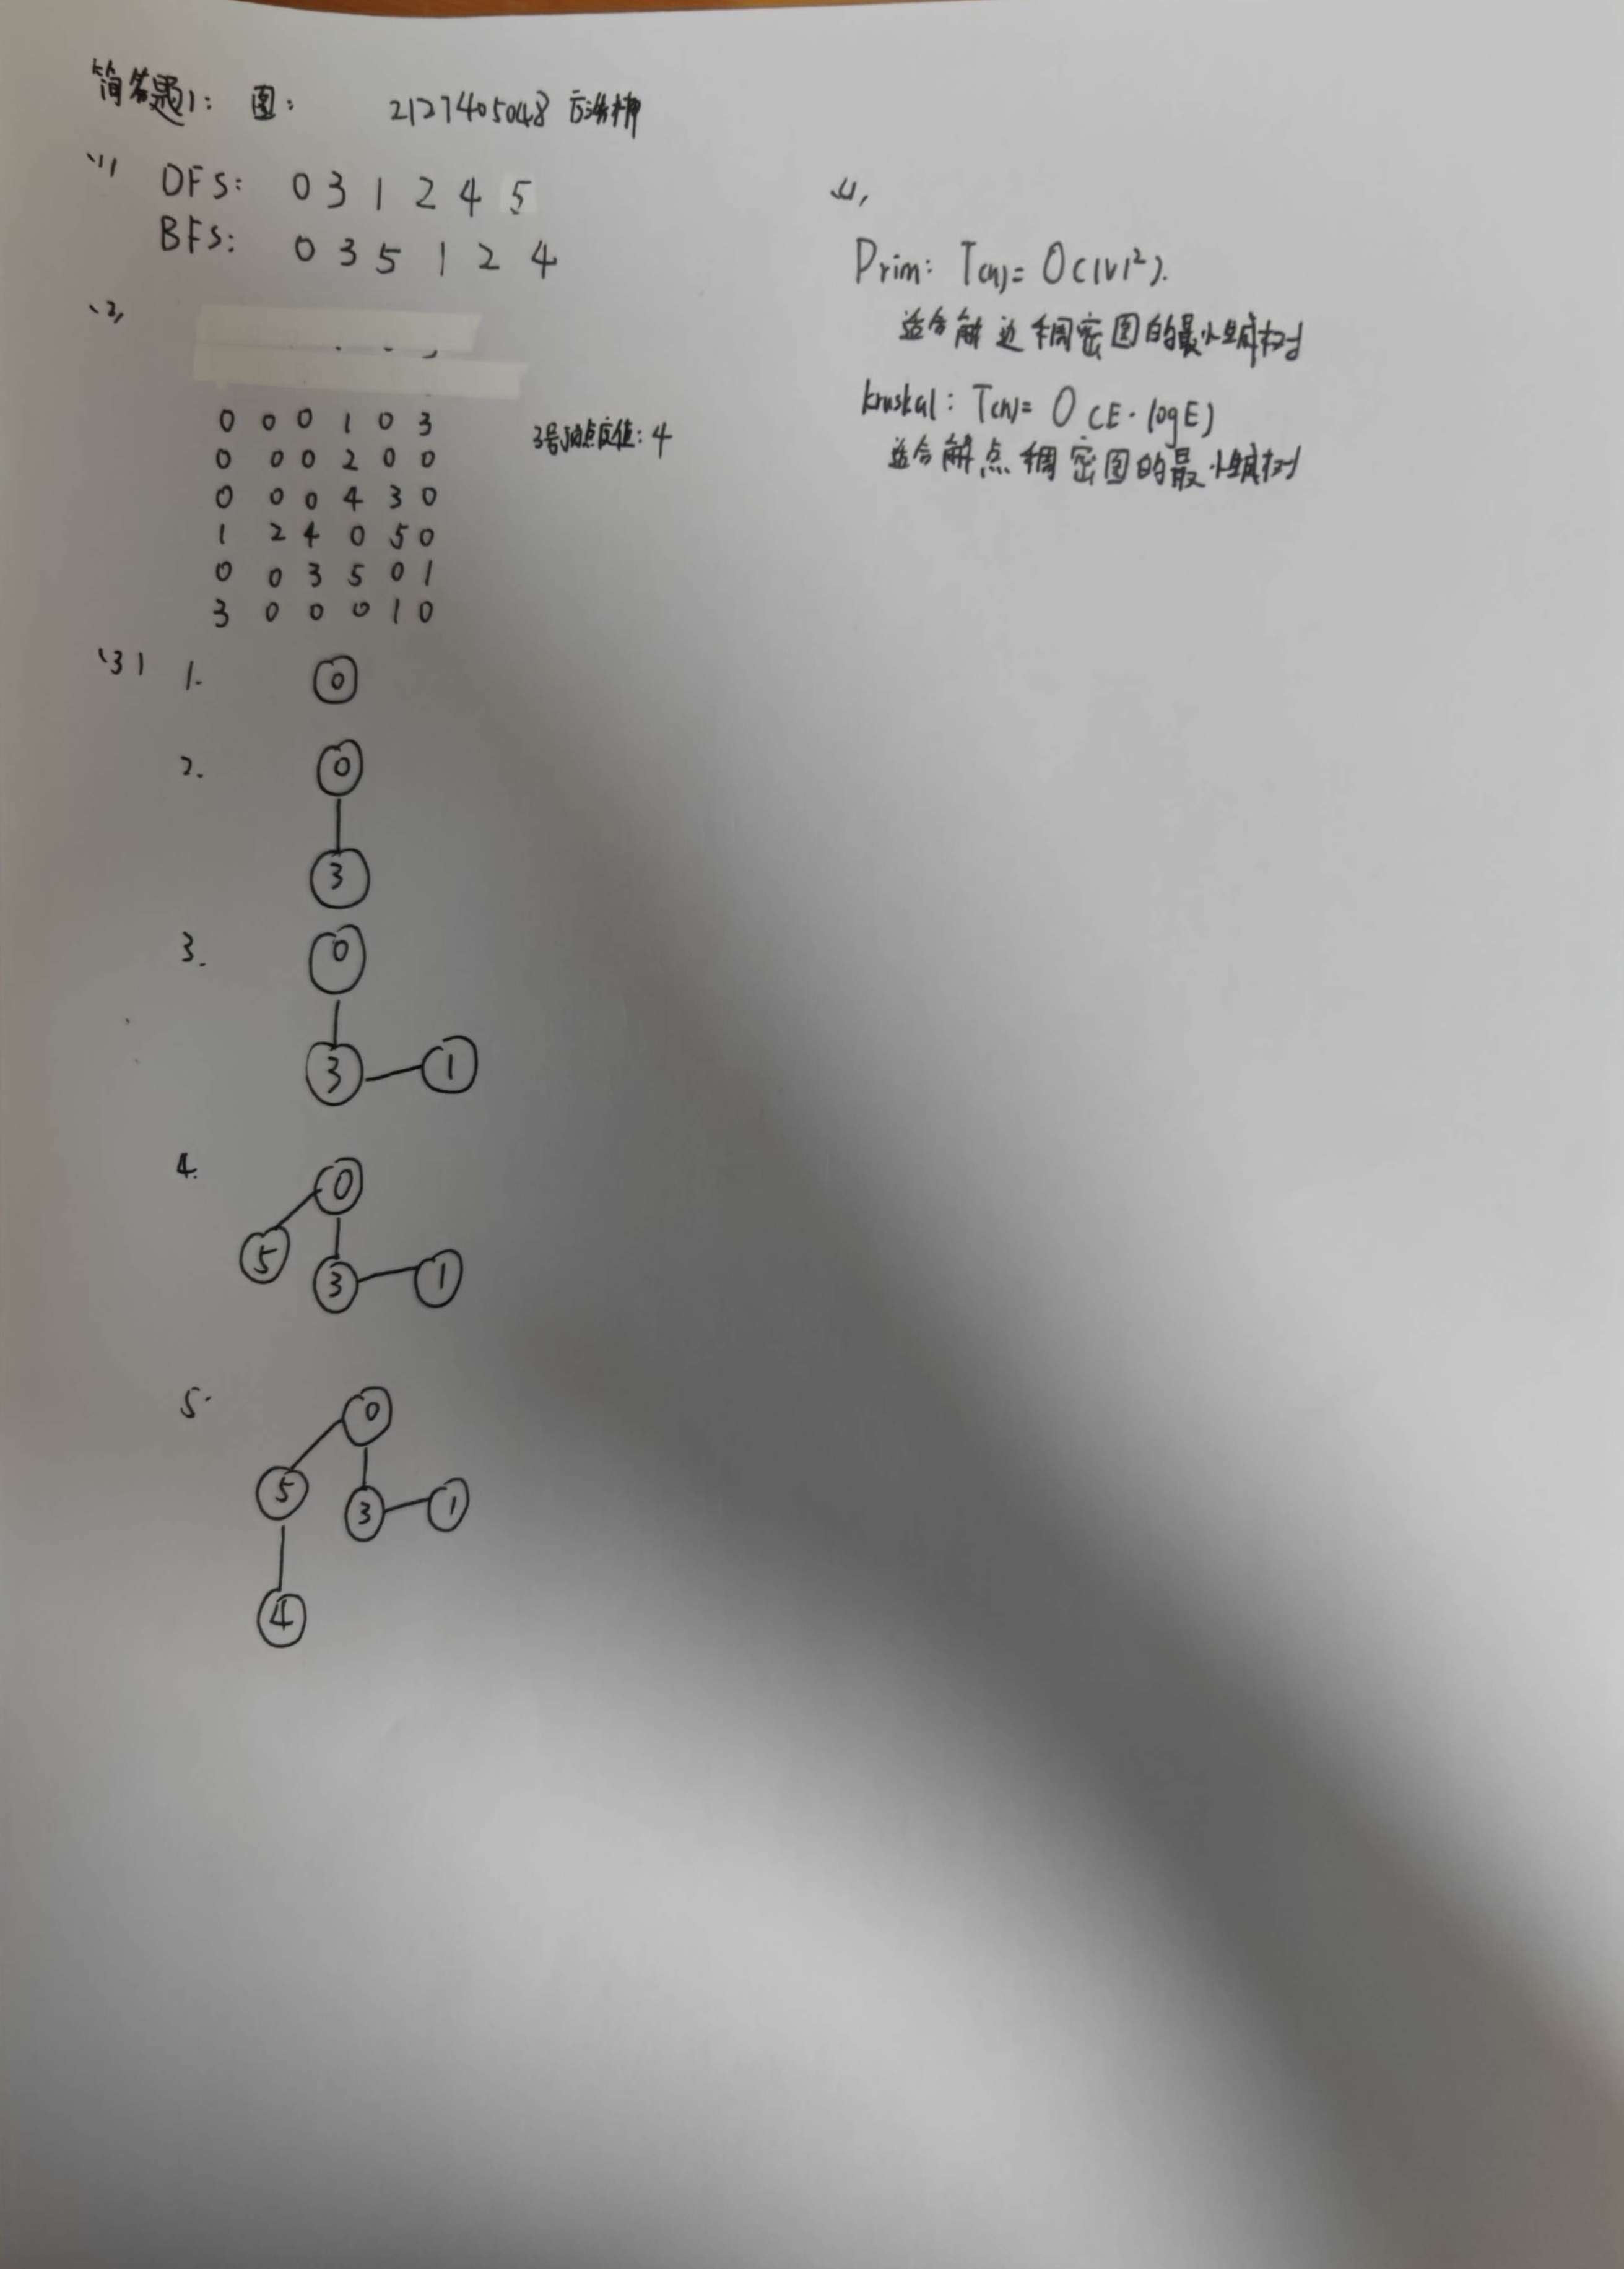 简答题1: 图: 2127405048
(1) DFS: 0 3 1 2 4 5
BFS: 0 3 5 1 2 4
(2)
0 0 0 1 0 3
0 0 0 2 0 0
0 0 0 4 3 0
1 2 4 0 5 0
0 0 3 5 0 1
3 0 0 0 1 0
3号顶点度值: 4
(3) 1.
0
2.
0
3
3.
0
3 1
4.
0
5
3 1
5.
0
5
3 1
4
(4)
Prim: T(n)= O(|V|²).
适合解边稠密图的最小生成树
kruskal: T(n)= O(E·logE)
适合解点稠密图的最小生成树